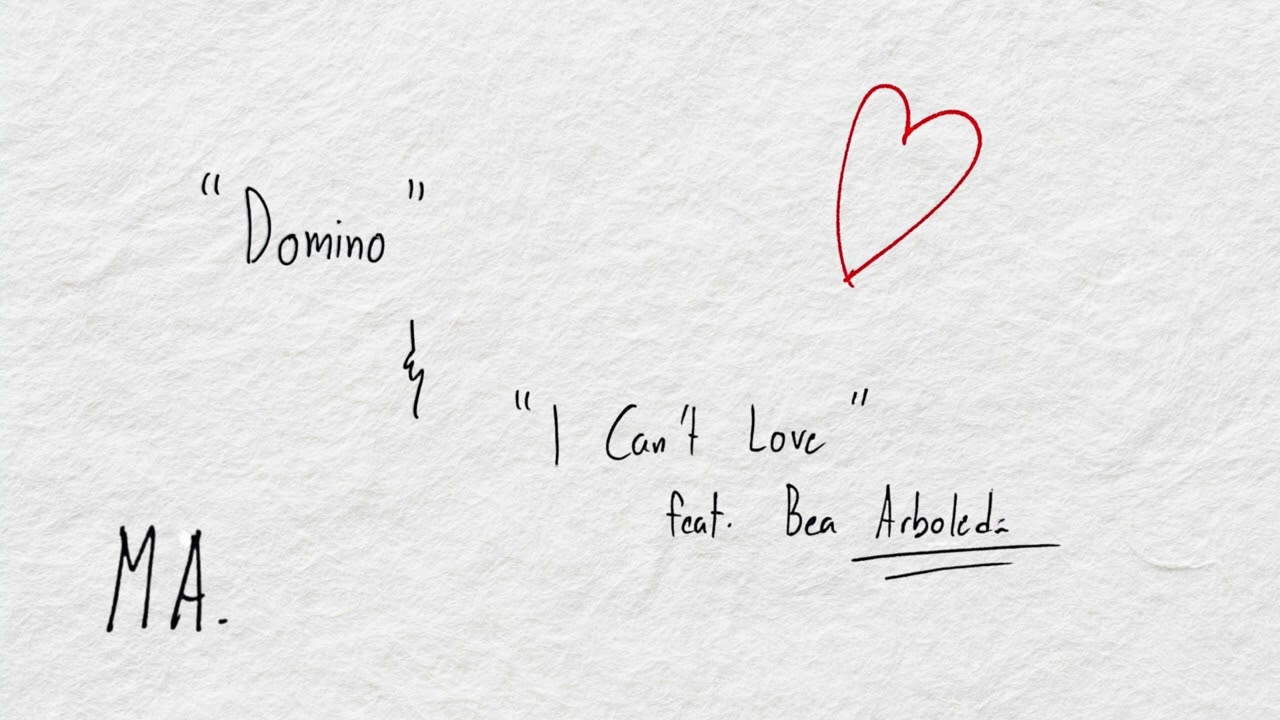 "Domino"
&
"I Can't Love"
feat. Bea Arboleda
MA.